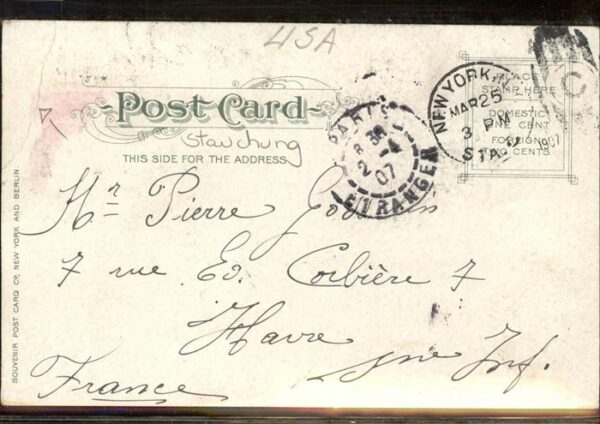 USA
POST CARD
Stauchung
THIS SIDE FOR THE ADDRESS
PLACE
STAMP HERE
DOMESTIC
ONE CENT
FOREIGN
TWO CENTS
NEW YORK, N.Y.
MAR 25
3 PM
STA.
1907
C
PARIS
8 30
2 -4
07
ETRANGER
Mr Pierre
7 rue Ed. Corbière 7
Havre
Sne Inf.
France
SOUVENIR POST CARD CO., NEW YORK AND BERLIN.